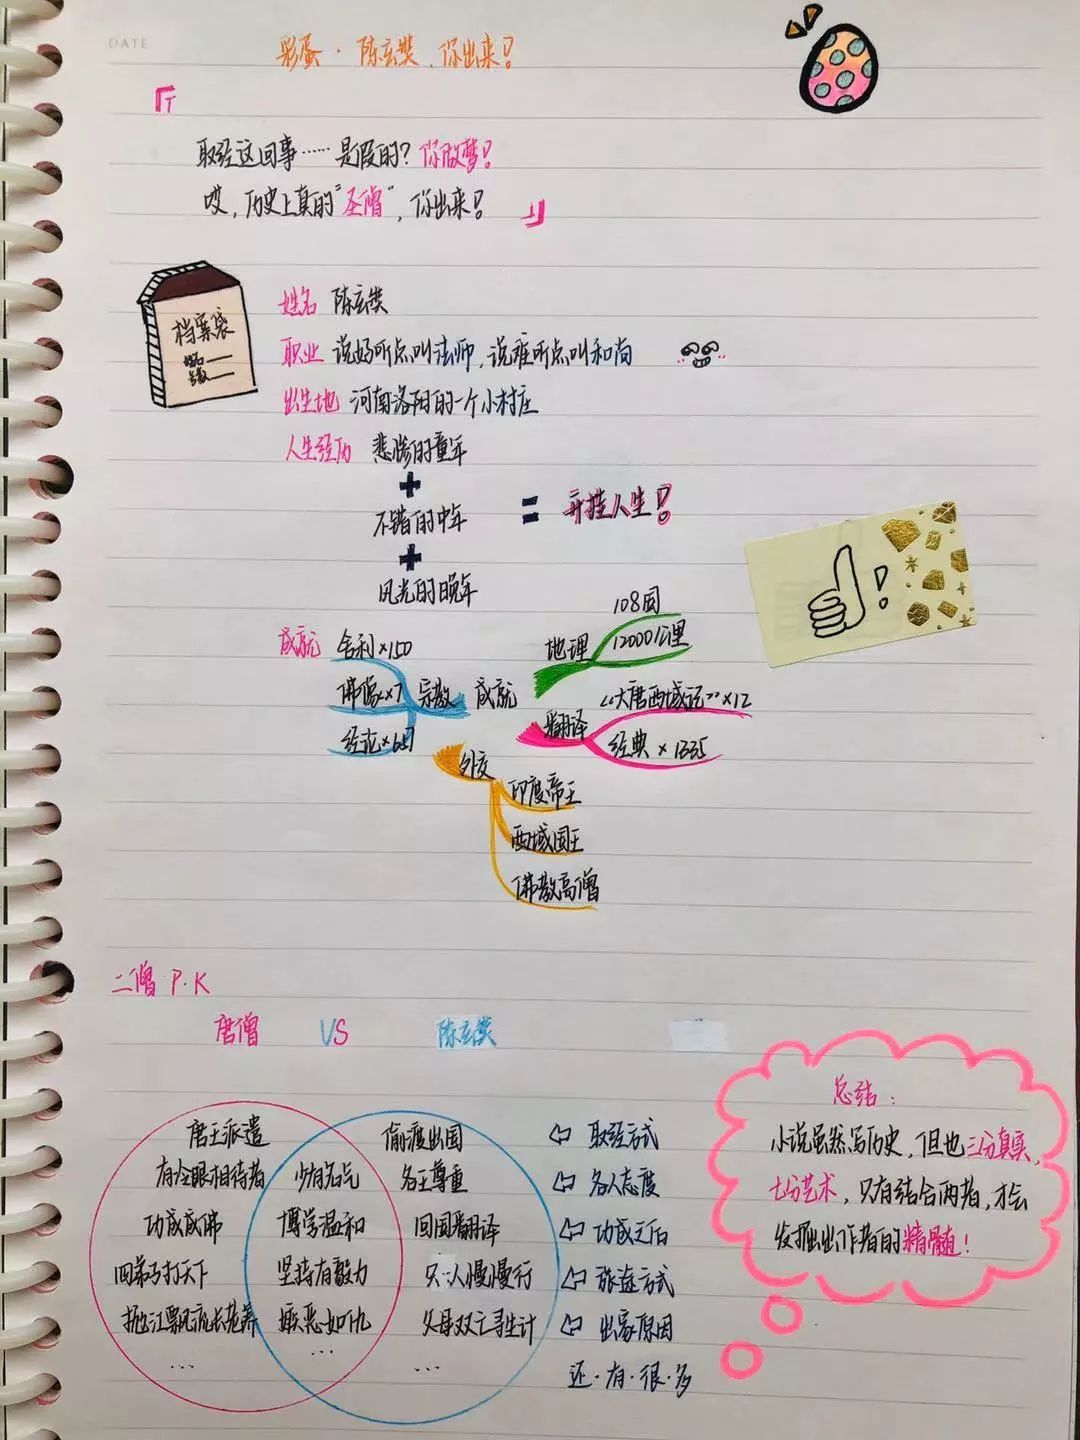 DATE
彩蛋·陈玄奘,你出来!
取经这回事……是假的?你做梦!
哎,历史上真的"圣僧",你出来!
档案袋
姓名 陈玄奘
职业 说好听点叫法师,说难听点叫和尚
出生地 河南洛阳的一个小村庄
人生经历 悲惨的童年
+
不错的中年 = 开挂人生!
+
风光的晚年
成就 舍利×150
佛像×7
经论×657
宗教
成就
地理
108国
12000公里
翻译
《大唐西域记》×12
经典×1335
外交
印度帝王
西域国王
佛教高僧
二僧 P.K
唐僧 VS 陈玄奘
唐王派遣 偷渡出国 ⇦ 取经方式
有冷眼相待者 少有名气 各王尊重 ⇦ 各人态度
功成成佛 博学温和 回国翻译 ⇦ 功成之后
四弟子打天下 坚持有毅力 只一人慢慢行 ⇦ 旅途方式
抛江票风流长老养 嫉恶如仇 父母双亡寻生计 ⇦ 出家原因
… … … 还·有·很·多
总结:
小说虽然写历史,但也三分真实,
七分艺术,只有结合两者,才会
发掘出作者的精髓!